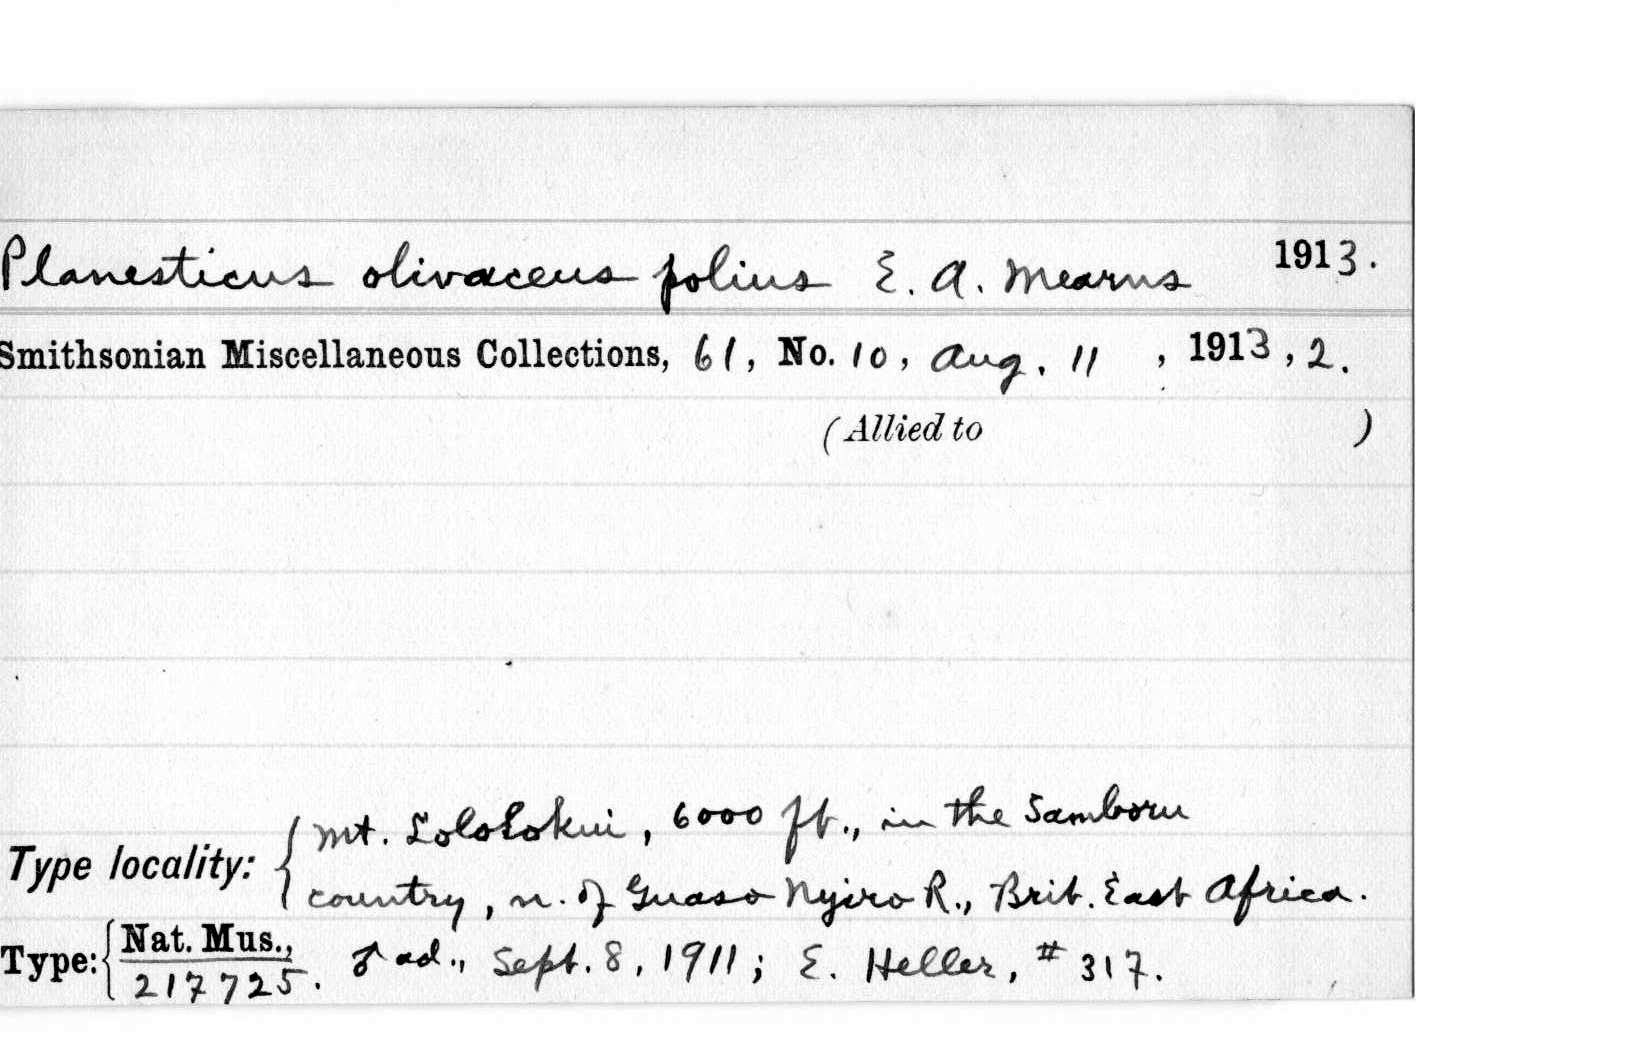 Planesticus olivaceus polius E. A. Mearns 1913.
Smithsonian Miscellaneous Collections, 61, No. 10, Aug. 11 , 1913, 2.
(Allied to )
Mt. Lololokui, 6000 ft., in the Samboru
Type locality: country, n. of Guaso Nyiro R., Brit. East Africa.
Type: Nat. Mus., ♂ ad., Sept. 8, 1911; E. Heller, # 317.
217725.